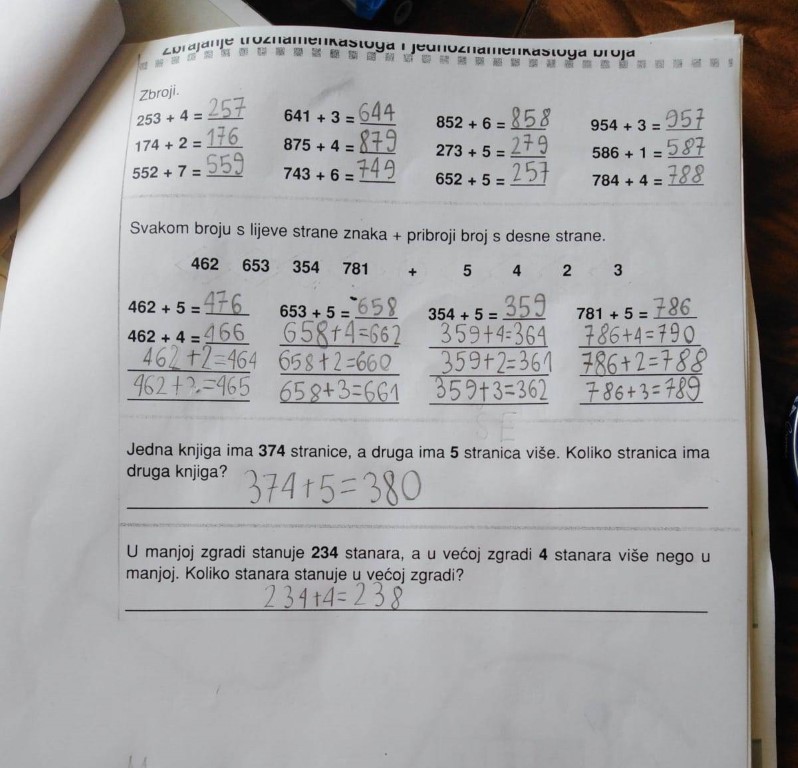 Zbrajanje troznamenkastoga i jednoznamenkastoga broja
Zbroji.
253 + 4 = 257 641 + 3 = 644 852 + 6 = 858 954 + 3 = 957
174 + 2 = 176 875 + 4 = 879 273 + 5 = 279 586 + 1 = 587
552 + 7 = 559 743 + 6 = 749 652 + 5 = 257 784 + 4 = 788
Svakom broju s lijeve strane znaka + pribroji broj s desne strane.
462 653 354 781 + 5 4 2 3
462 + 5 = 476 653 + 5 = 658 354 + 5 = 359 781 + 5 = 786
462 + 4 = 466 658+4=662 359+4=364 786+4=790
462+2=464 658+2=660 359+2=361 786+2=788
462+3=465 658+3=661 359+3=362 786+3=789
Jedna knjiga ima 374 stranice, a druga ima 5 stranica više. Koliko stranica ima
druga knjiga? 374+5=380
U manjoj zgradi stanuje 234 stanara, a u većoj zgradi 4 stanara više nego u
manjoj. Koliko stanara stanuje u većoj zgradi?
234+4=238